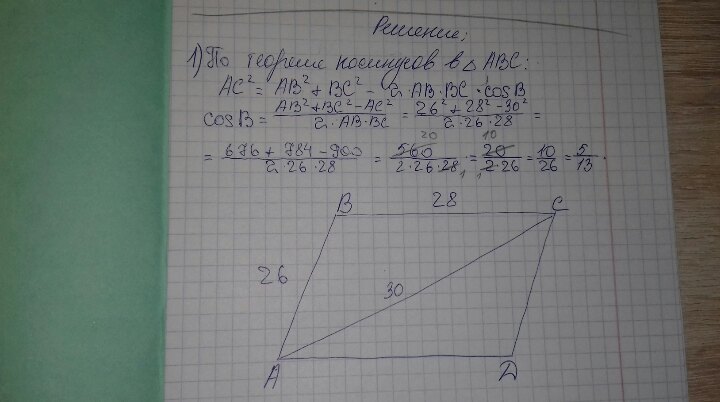 Решение:
1) По теореме косинусов в △ABC:
AC² = AB² + BC² - 2·AB·BC·cosB
cosB = (AB² + BC² - AC²)/(2·AB·BC) = (26² + 28² - 30²)/(2·26·28) =
= (676 + 784 - 900)/(2·26·28) = 560/(2·26·28) = 20/(2·26) = 10/26 = 5/13.
20 1 10 1
B 28 C
26
30
A D